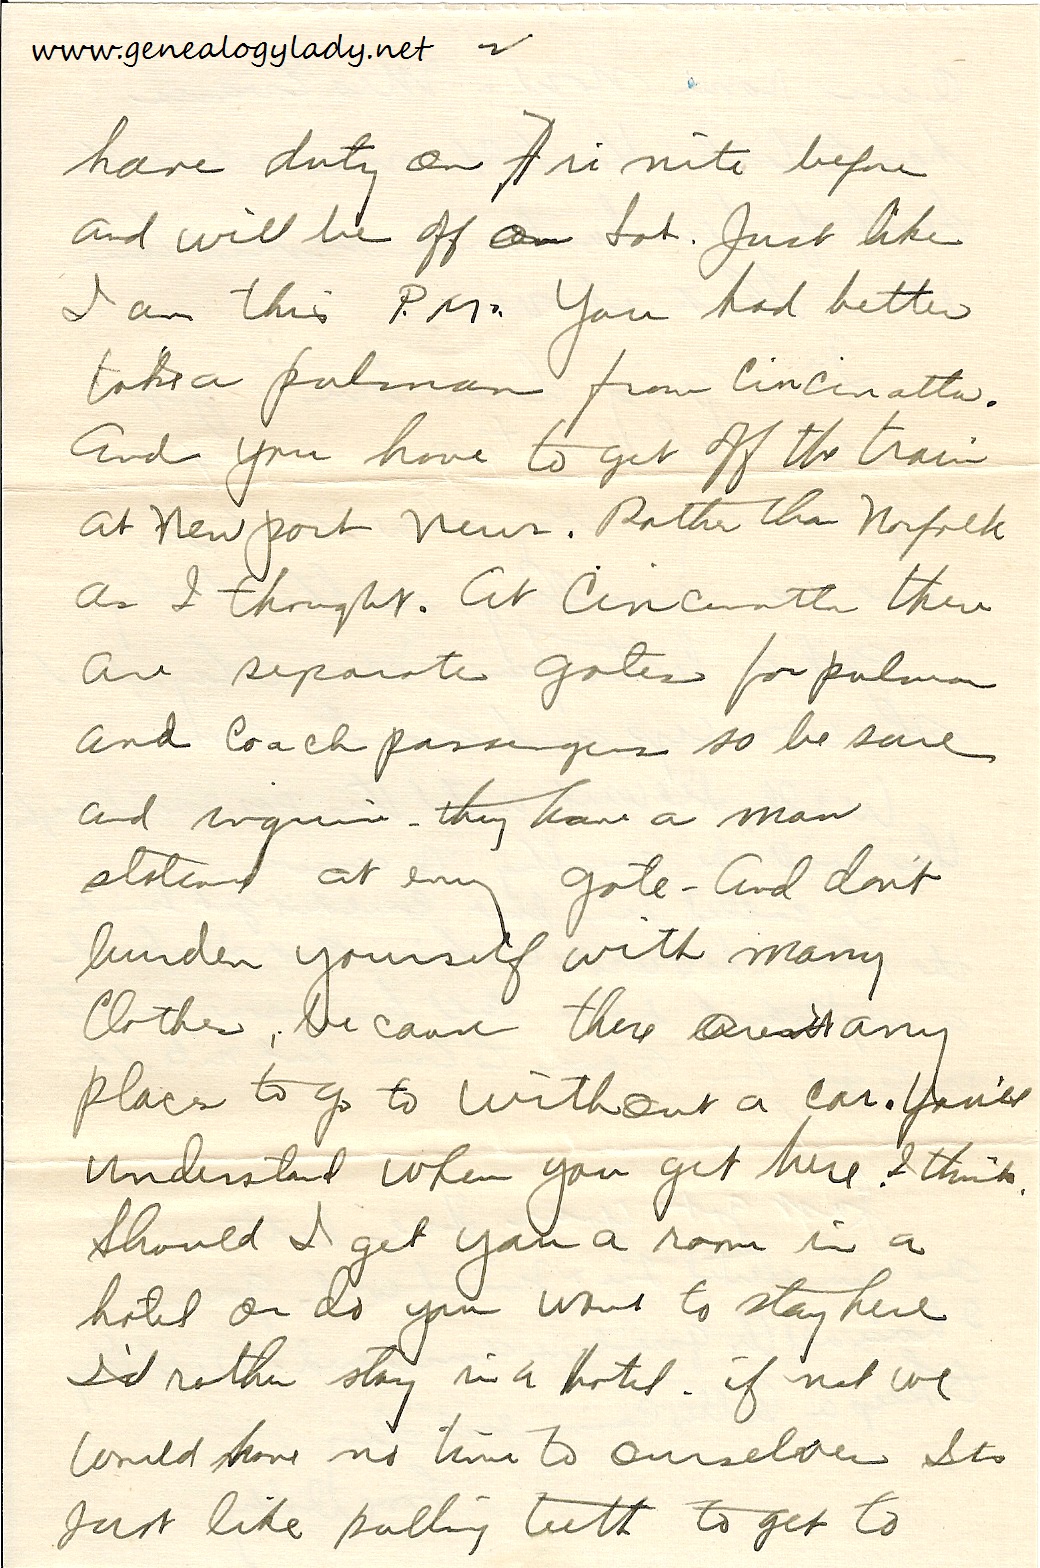 www.genealogylady.net
have duty on Fri nite before
and will be off on Sat. Just like
I am this P.M. You had better
take a pulman from Cincinatta.
And you have to get off the train
at Newport News. Rather than Norfolk
as I thought. At Cincinatta there
are separate gates for pulman
and Coach passengers so be sure
and inquire - they have a man
stationed at every gate - And don't
burden yourself with many
Clothes, because there aren't any
places to go to without a car. You'll
understand when you get here. I think.
Should I get you a room in a
hotel or do you want to stay here
I'd rather stay in a hotel. if not we
would have no time to ourselves Its
just like pulling teeth to get to